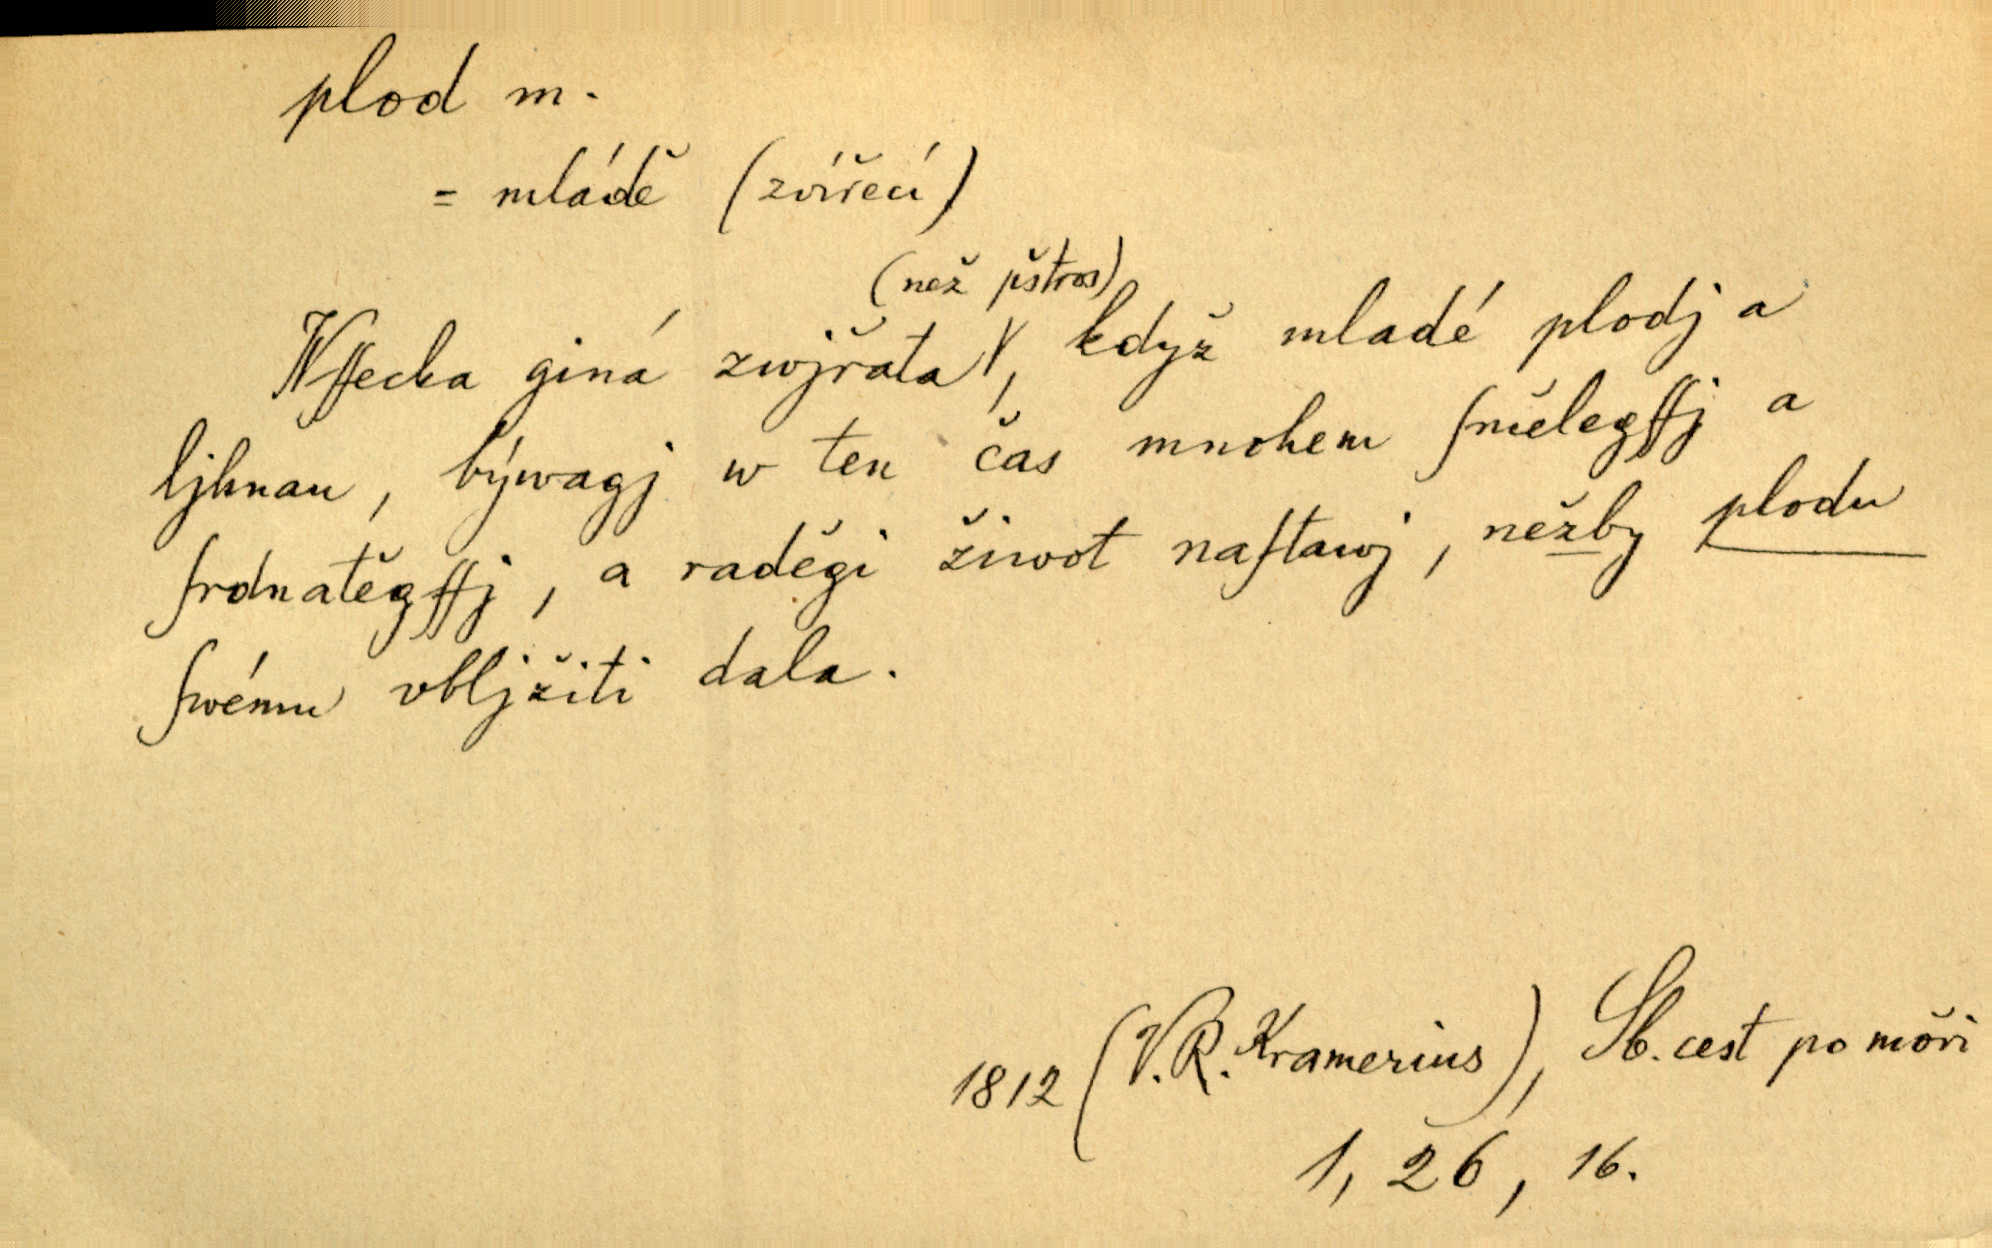 plod m.
= mládě (zvířecí)
(než pštros)
Wſſecka giná zwjřata, když mladé plodj a
ljhnau, býwagj w ten čas mnohem ſmělegſſj a
ſrdnatěgſſj, a raděgi žiwot naſtawj, nežby plodu
ſwému vbljžiti dala.
1812 (V.R. Kramerius), Sb. cest po moři
1, 26, 16.